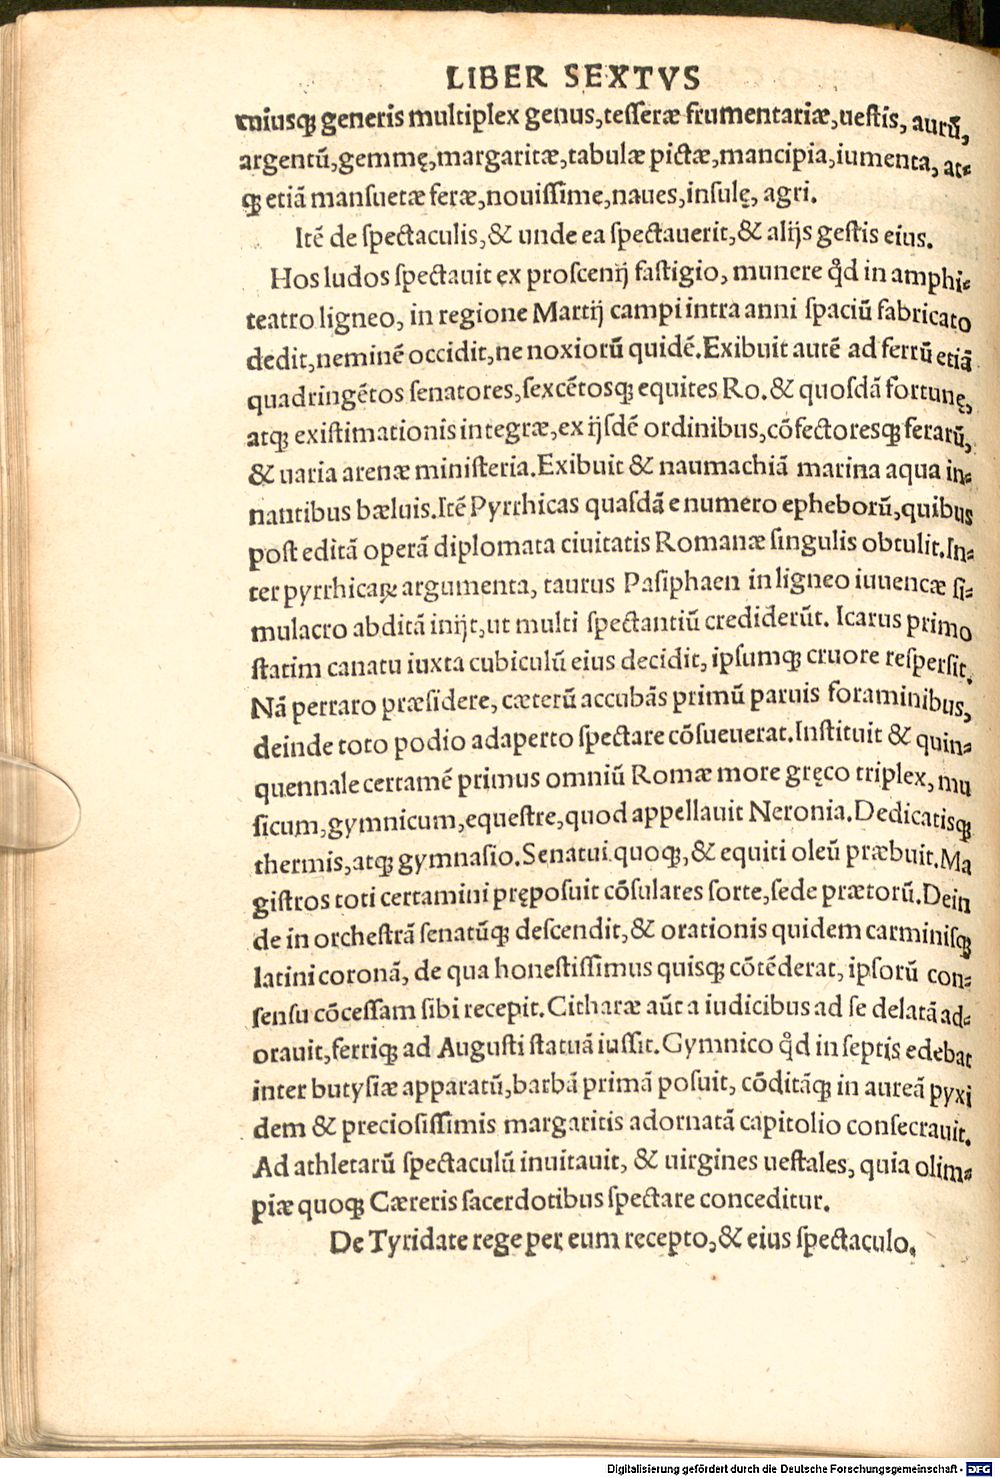 LIBER SEXTVS
cuiusqꝫ generis multiplex genus,tesseræ frumentariæ,uestis, aurũ,
argentũ,gemmę,margaritæ,tabulæ pictæ,mancipia,iumenta, at-
qꝫ etiã mansuetæ feræ,nouissime,naues,insulę, agri.
Itẽ de spectaculis,& unde ea spectauerit,& alijs gestis eius.
Hos ludos spectauit ex proscenij fastigio, munere qd̉ in amphi-
teatro ligneo, in regione Martij campi intra anni spaciũ fabricato
dedit,neminẽ occidit,ne noxiorũ quidẽ.Exibuit autẽ ad ferrũ etiã
quadringẽtos senatores,sexcẽtosqꝫ equites Ro.& quosdã fortunę,
atqꝫ existimationis integræ,ex ijsdẽ ordinibus,cõfectoresqꝫ ferarũ,
& uaria arenæ ministeria.Exibuit & naumachiã marina aqua in-
nantibus bæluis.Itẽ Pyrrhicas quasdã e numero epheborũ,quibus
post editã operã diplomata ciuitatis Romanæ singulis obtulit.In-
ter pyrrhicaꝝ argumenta, taurus Pasiphaen in ligneo iuuencæ si-
mulacro abditã inijt,ut multi spectantiũ crediderũt. Icarus primo
statim canatu iuxta cubiculũ eius decidit, ipsumqꝫ cruore respersit.
Nã perraro præsidere, cæterũ accubãs primũ paruis foraminibus,
deinde toto podio adaperto spectare cõsueuerat.Instituit & quin-
quennale certamẽ primus omniũ Romæ more gręco triplex, mu
sicum,gymnicum,equestre,quod appellauit Neronia.Dedicatisqꝫ
thermis,atqꝫ gymnasio.Senatui quoqꝫ,& equiti oleũ præbuit.Ma
gistros toti certamini pręposuit cõsulares sorte,sede prætorũ.Dein
de in orchestrã senatũqꝫ descendit,& orationis quidem carminisqꝫ
latini coronã, de qua honestissimus quisqꝫ cõtẽderat, ipsorũ con-
sensu cõcessam sibi recepit.Citharæ aũt a iudicibus ad se delatã ad-
orauit,ferriqꝫ ad Augusti statuã iussit.Gymnico qd̉ in septis edebat
inter butysiæ apparatũ,barbã primã posuit, cõditãqꝫ in aureã pyxi
dem & preciosissimis margaritis adornatã capitolio consecrauit.
Ad athletarũ spectaculũ inuitauit, & uirgines uestales, quia olim-
piæ quoqꝫ Cæreris sacerdotibus spectare conceditur.
De Tyridate rege per eum recepto,& eius spectaculo.
Digitalisierung gefördert durch die Deutsche Forschungsgemeinschaft - DFG